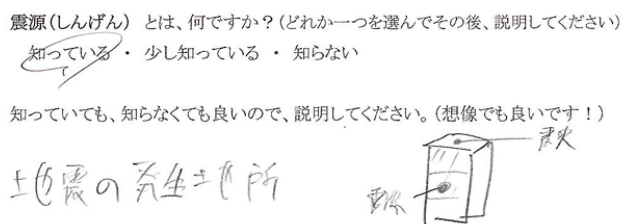 震源(しんげん) とは、何ですか？(どれか一つを選んでその後、説明してください)
知っている ・ 少し知っている ・ 知らない
知っていても、知らなくても良いので、説明してください。(想像でも良いです！)
地震の発生地所
震央
震源